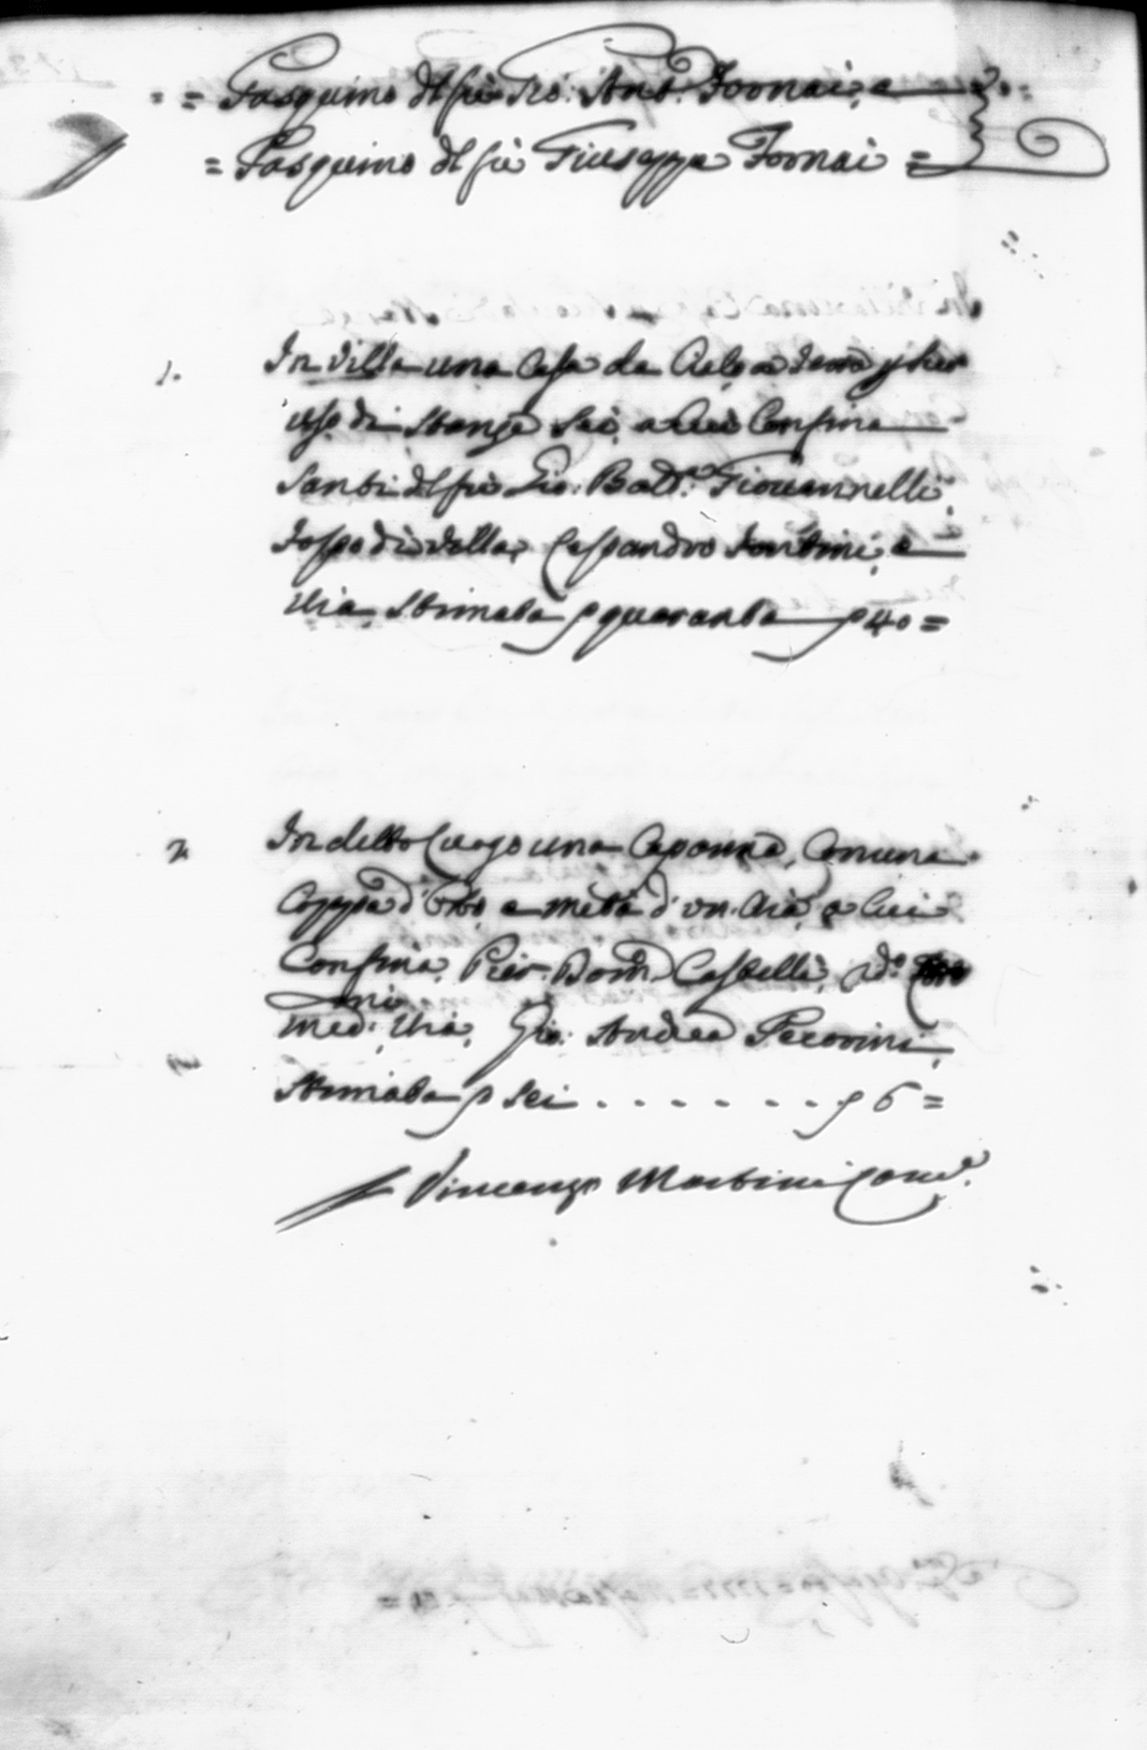 = = Pasquino del fù Gio: Ant.º Fornai, e
= Pasquino del fù Giuseppe Fornai =
1. In Villa una Casa da Cielo a terra p suo
uso di Stanze Sei, a Cui Confina
Santi del fù Gio: Batt.ª Giovannelli,
della, Lessandro Fontini, e
Via, Stimata p quaranta p 40 =
2. In detto Luogo una Capanna, Comuna
Coppie d'Orto e metà d'un Aia, a Cui
Confina, Pier Dom.º Castelli, ad.º
med.º Via, Gio: Andrea Pecorini,
Stimata p sei . . . . . . . p 6 =
Vincenzo Martini Canc.e